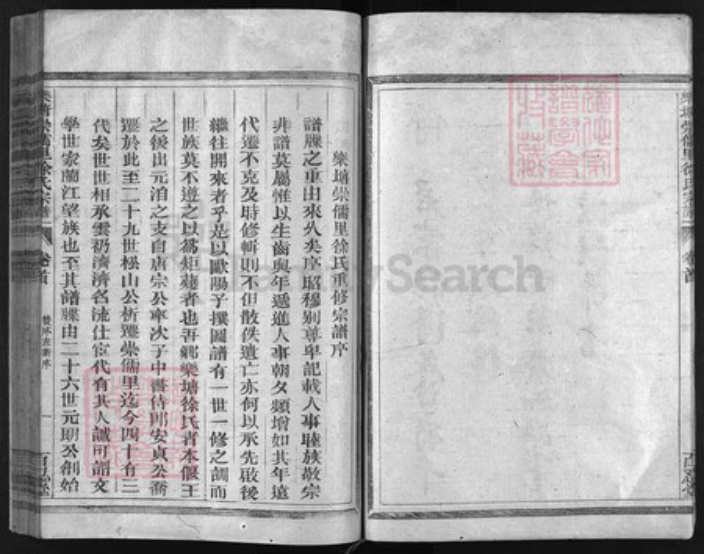 樂塘崇儒里徐氏重修宗譜序
譜牒之重由來久矣序昭穆别尊卑記載人事睦族敬宗
非譜莫屬惟以生齒與年遞進人事朝夕頻增如其年遠
代遷不克及時修輯則不但散佚遺亡亦何以承先啟後
繼往開來者乎是以歐陽子撰圖譜有一世一修之訓而
世族莫不遵之以爲矩蒦者也吾鄉樂塘徐氏者本偃王
之後出元洎之支自唐宗公率次子中書侍郎安貞公喬
遷於此至二十九世松山公析遷崇儒里迄今四十有三
代矣世世相承雲礽濟濟名流仕宦代有其人誠可謂文
學世家蘭江望族也至其譜牒由二十六世元明公創始
樂塘崇儒里徐氏宗譜
卷首
一
百忍堂
樂塘崇儒里徐氏宗譜
卷首
百忍堂
FamilySearch